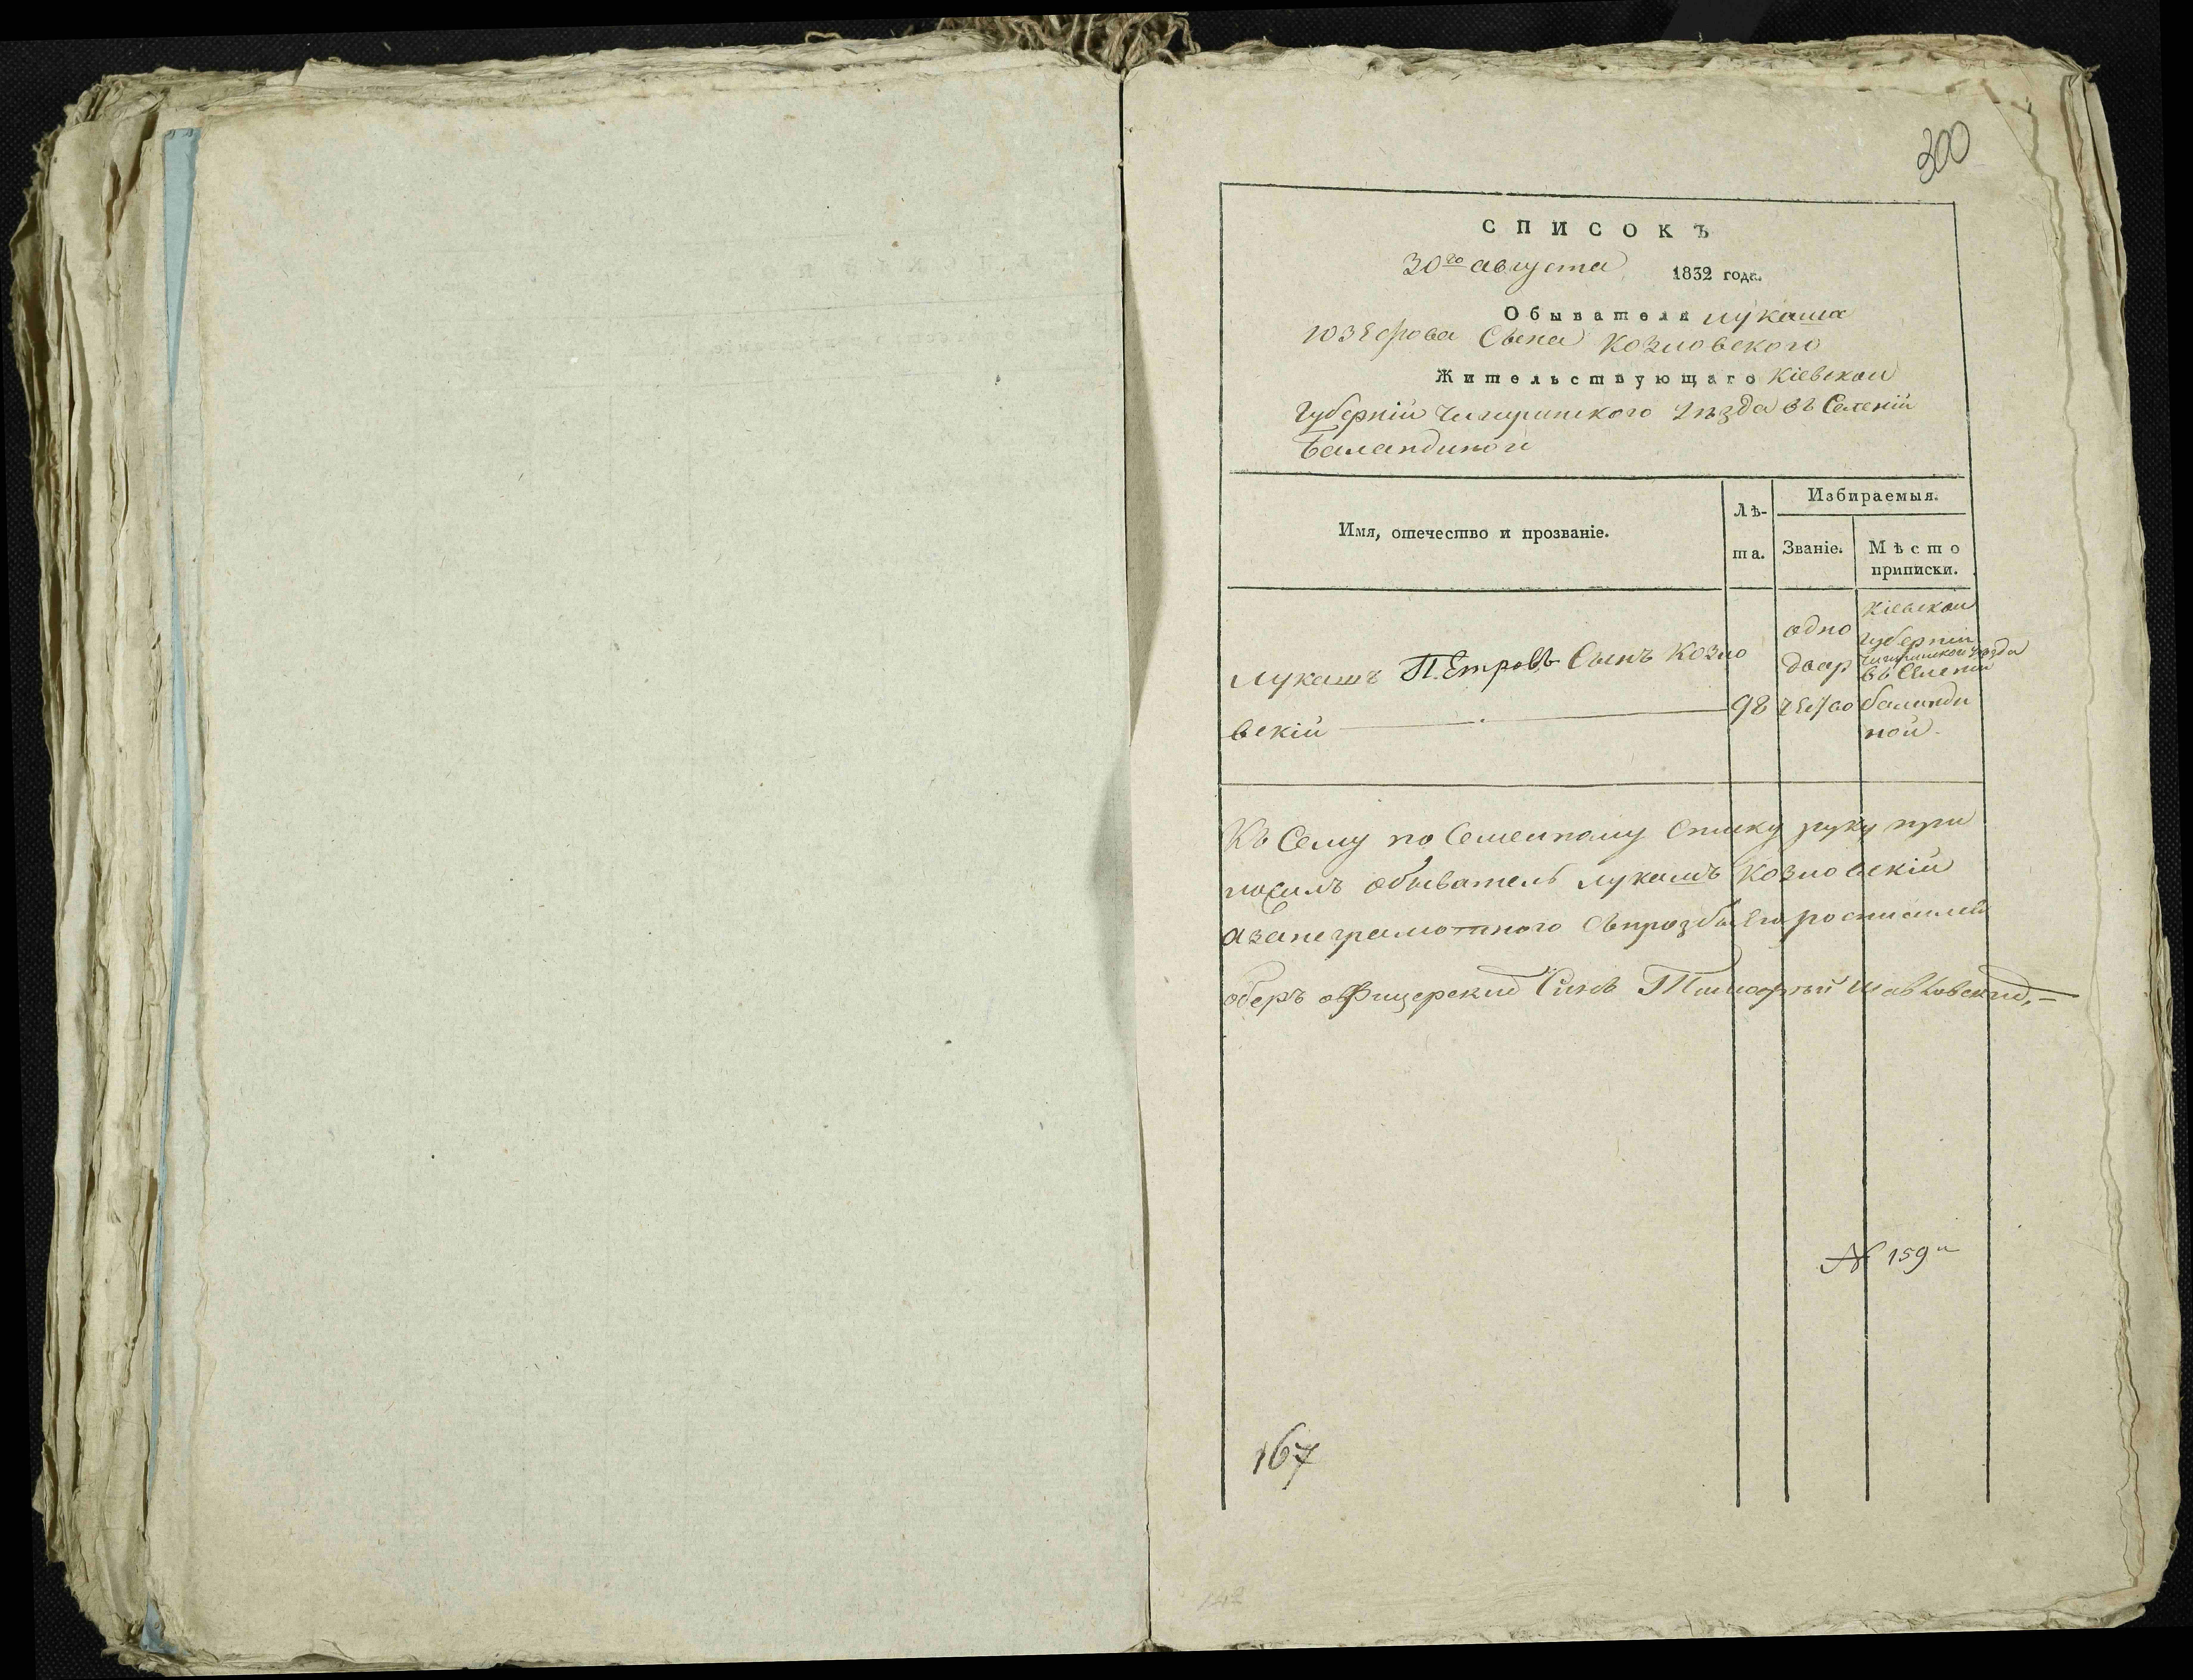 300
СПИСОКЪ
30го августа 1832 года.
Обывателя лукаша
юзЕфова Сына Козловского
Жительствующаго Кіевской
Губерніи Чигиринского уѣзда въ Селеніи
Баландиной
Имя, отечество и прозваніе.
Лѣта.
Избираемыя.
Званіе.
Мѣсто приписки.
лукашъ П.Етровъ Сынъ Козло
вскій
98
одно
двор
Кіевской
Губерніи
Чигиринской уѣзда
въ Селеніи
баланди
ной.
Къ Сему по Семейному Списку руку при
ложилъ обыватель лукашъ Козловскій
а за неграмотного Спрозбы Его росписался
оберъ офицерский Синъ Тимофтей
№ 159
167
142